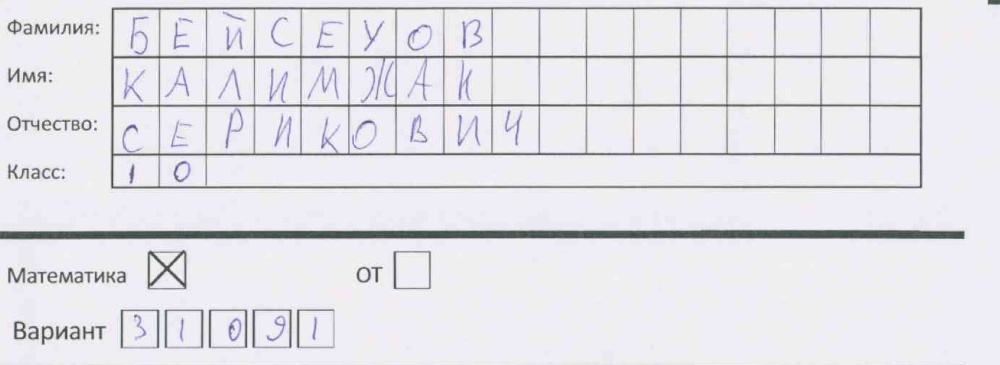 Фамилия: БЕЙСЕУОВ
Имя: КАЛИМЖАН
Отчество: СЕРИКОВИЧ
Класс: 10
Математика ☒ ОТ ☐
Вариант 31091